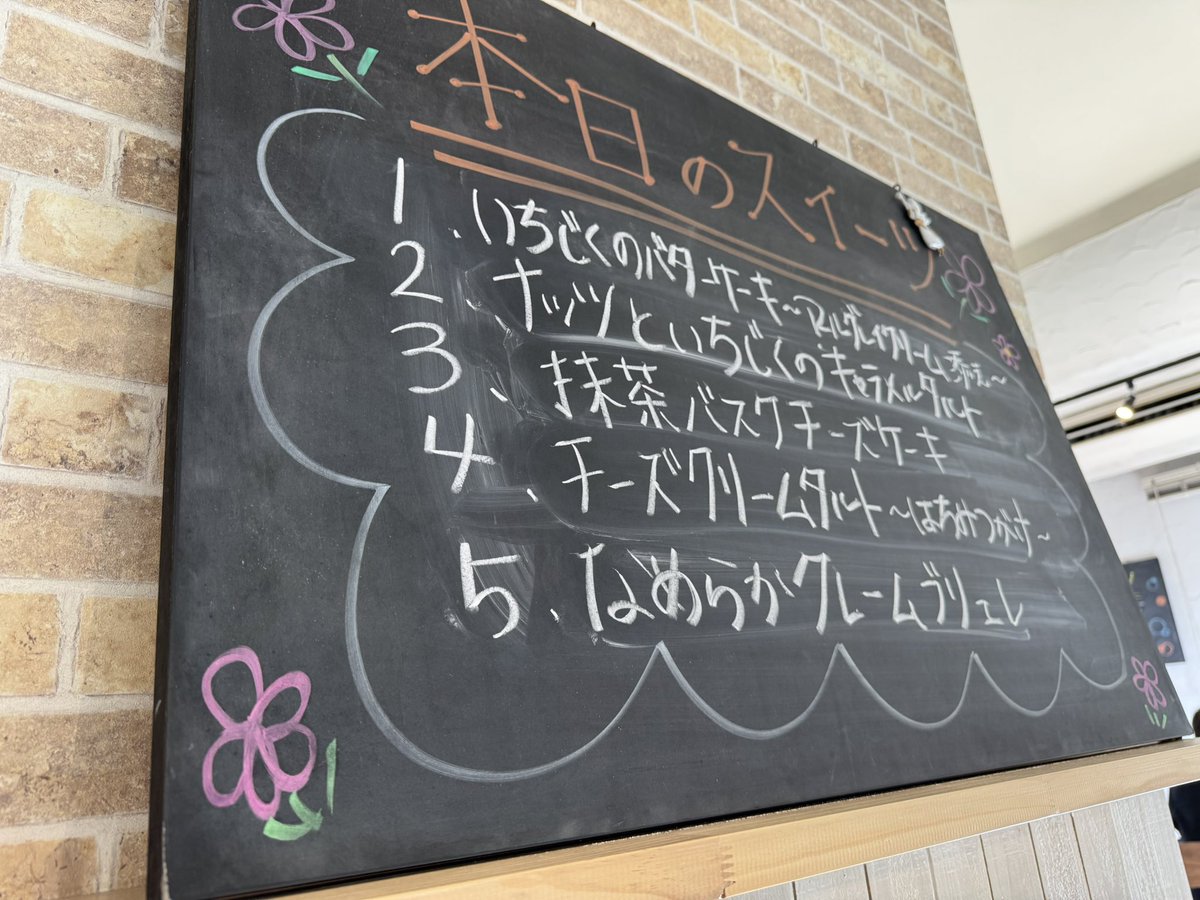 本日のスイーツ
1、いちじくのバターケーキ～アールグレイクリーム添え～
2、ナッツといちじくのキャラメルタルト
3、抹茶バスクチーズケーキ
4、チーズクリームタルト～はちみつがけ～
5、なめらかクレームブリュレ